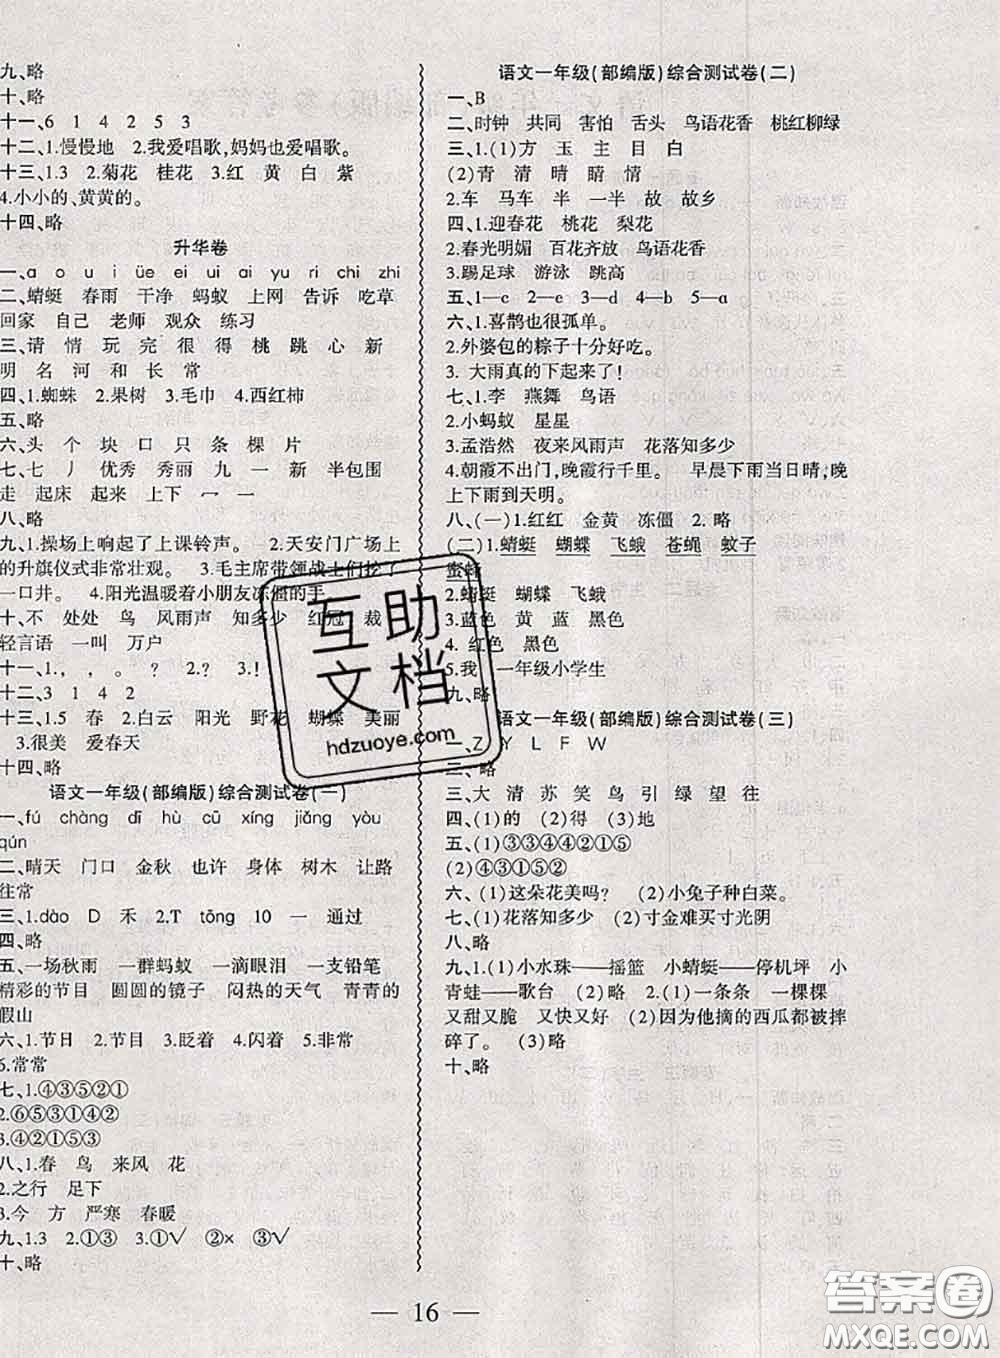 九、略
十、略
十一、6 1 4 2 5 3
十二、1.慢慢地 2.我爱唱歌,妈妈也爱唱歌。
十三、1.3 2.菊花 桂花 3.红 黄 白 紫
4.小小的、黄黄的。
十四、略
升华卷
一、a o u i üe ei ui ai yu ri chi zhi
二、蜻蜓 春雨 干净 蚂蚁 上网 告诉 吃草
回家 自己 老师 观众 练习
三、请 情 玩 完 很 得 桃 跳 心 新
明 名 河 和 长 常
四、1.蜘蛛 2.果树 3.毛巾 4.西红柿
五、略
六、头 个 块 口 只 条 棵 片
七、七 丿 优秀 秀丽 九 一 新 半包围
走 起床 起来 上下 冖 一
八、略
九、1.操场上响起了上课铃声。 2.天安门广场上
的升旗仪式非常壮观。 3.毛主席带领战士们挖了
一口井。 4.阳光温暖着小朋友冻僵的手。
十、不 处处 鸟 风雨声 知多少 红冠 裁
轻言语 一叫 万户
十一、1. , 。 ? 2.? 3.!
十二、3 1 4 2
十三、1.5 春 2.白云 阳光 野花 蝴蝶 美丽
3.很美 爱春天
十四、略
语文一年级(部编版)综合测试卷(一)
一、fú chàng dī hù cū xíng jiǎng yòu
qún
二、晴天 门口 金秋 也许 身体 树木 让路
往常
三、1.dào D 禾 2.T tōng 10 一 通过
四、略
五、一场秋雨 一群蚂蚁 一滴眼泪 一支铅笔
精彩的节目 圆圆的镜子 闷热的天气 青青的
假山
六、1.节日 2.节目 3.眨着 4.闪着 5.非常
6.常常
七、1.④③⑤②①
2.⑥⑤③①④②
3.④②①⑤③
八、1.春 鸟 来风 花
2.之行 足下
3.今 方 严寒 春暖
九、1.3 2.①③ 3.①√ ②× ③√
十、略
语文一年级(部编版)综合测试卷(二)
一、B
二、时钟 共同 害怕 舌头 鸟语花香 桃红柳绿
三、1.(1)方 玉 主 目 白
(2)青 清 晴 睛 情
2.车 马车 半 一半 故 故乡
四、1.迎春花 桃花 梨花
2.春光明媚 百花齐放 鸟语花香
3.踢足球 游泳 跳高
五、1—c 2—e 3—d 4—b 5—a
六、1.喜鹊也很孤单。
2.外婆包的粽子十分好吃。
3. 大雨真的下起来了!
七、1.李 燕舞 鸟语
2.小蚂蚁 星星
3.孟浩然 夜来风雨声 花落知多少
4.朝霞不出门,晚霞行千里。 早晨下雨当日晴,晚
上下雨到天明。
八、(一)1.红红 金黄 冻僵 2.略
(二)1.蜻蜓 蝴蝶 飞蛾 苍蝇 蚊子
蜜蜂
2.蜻蜓 蝴蝶 飞蛾
3.蓝色 黄 蓝 黑色
4. 红色 黑色
5.我 一年级小学生
九、略
语文一年级(部编版)综合测试卷(三)
一、Z Y L F W
二、略
三、大 清 苏 笑 鸟 引 绿 望 往
四、(1)的 (2)得 (3)地
五、(1)③③④④②①⑤
(2)④③①⑤②
六、(1)这朵花美吗? (2)小兔子种白菜。
七、(1)花落知多少 (2)寸金难买寸光阴
八、略
九、1.(1)小水珠——摇篮 小蜻蜓——停机坪 小
青蛙——歌台 (2)略 2.(1)一条条 一棵棵
又甜又脆 又快又好 (2)因为他摘的西瓜都被摔
碎了。 (3)略
十、略
— 16 —
互助
文档
hdzuoye.com
答案圈
MXQE.COM